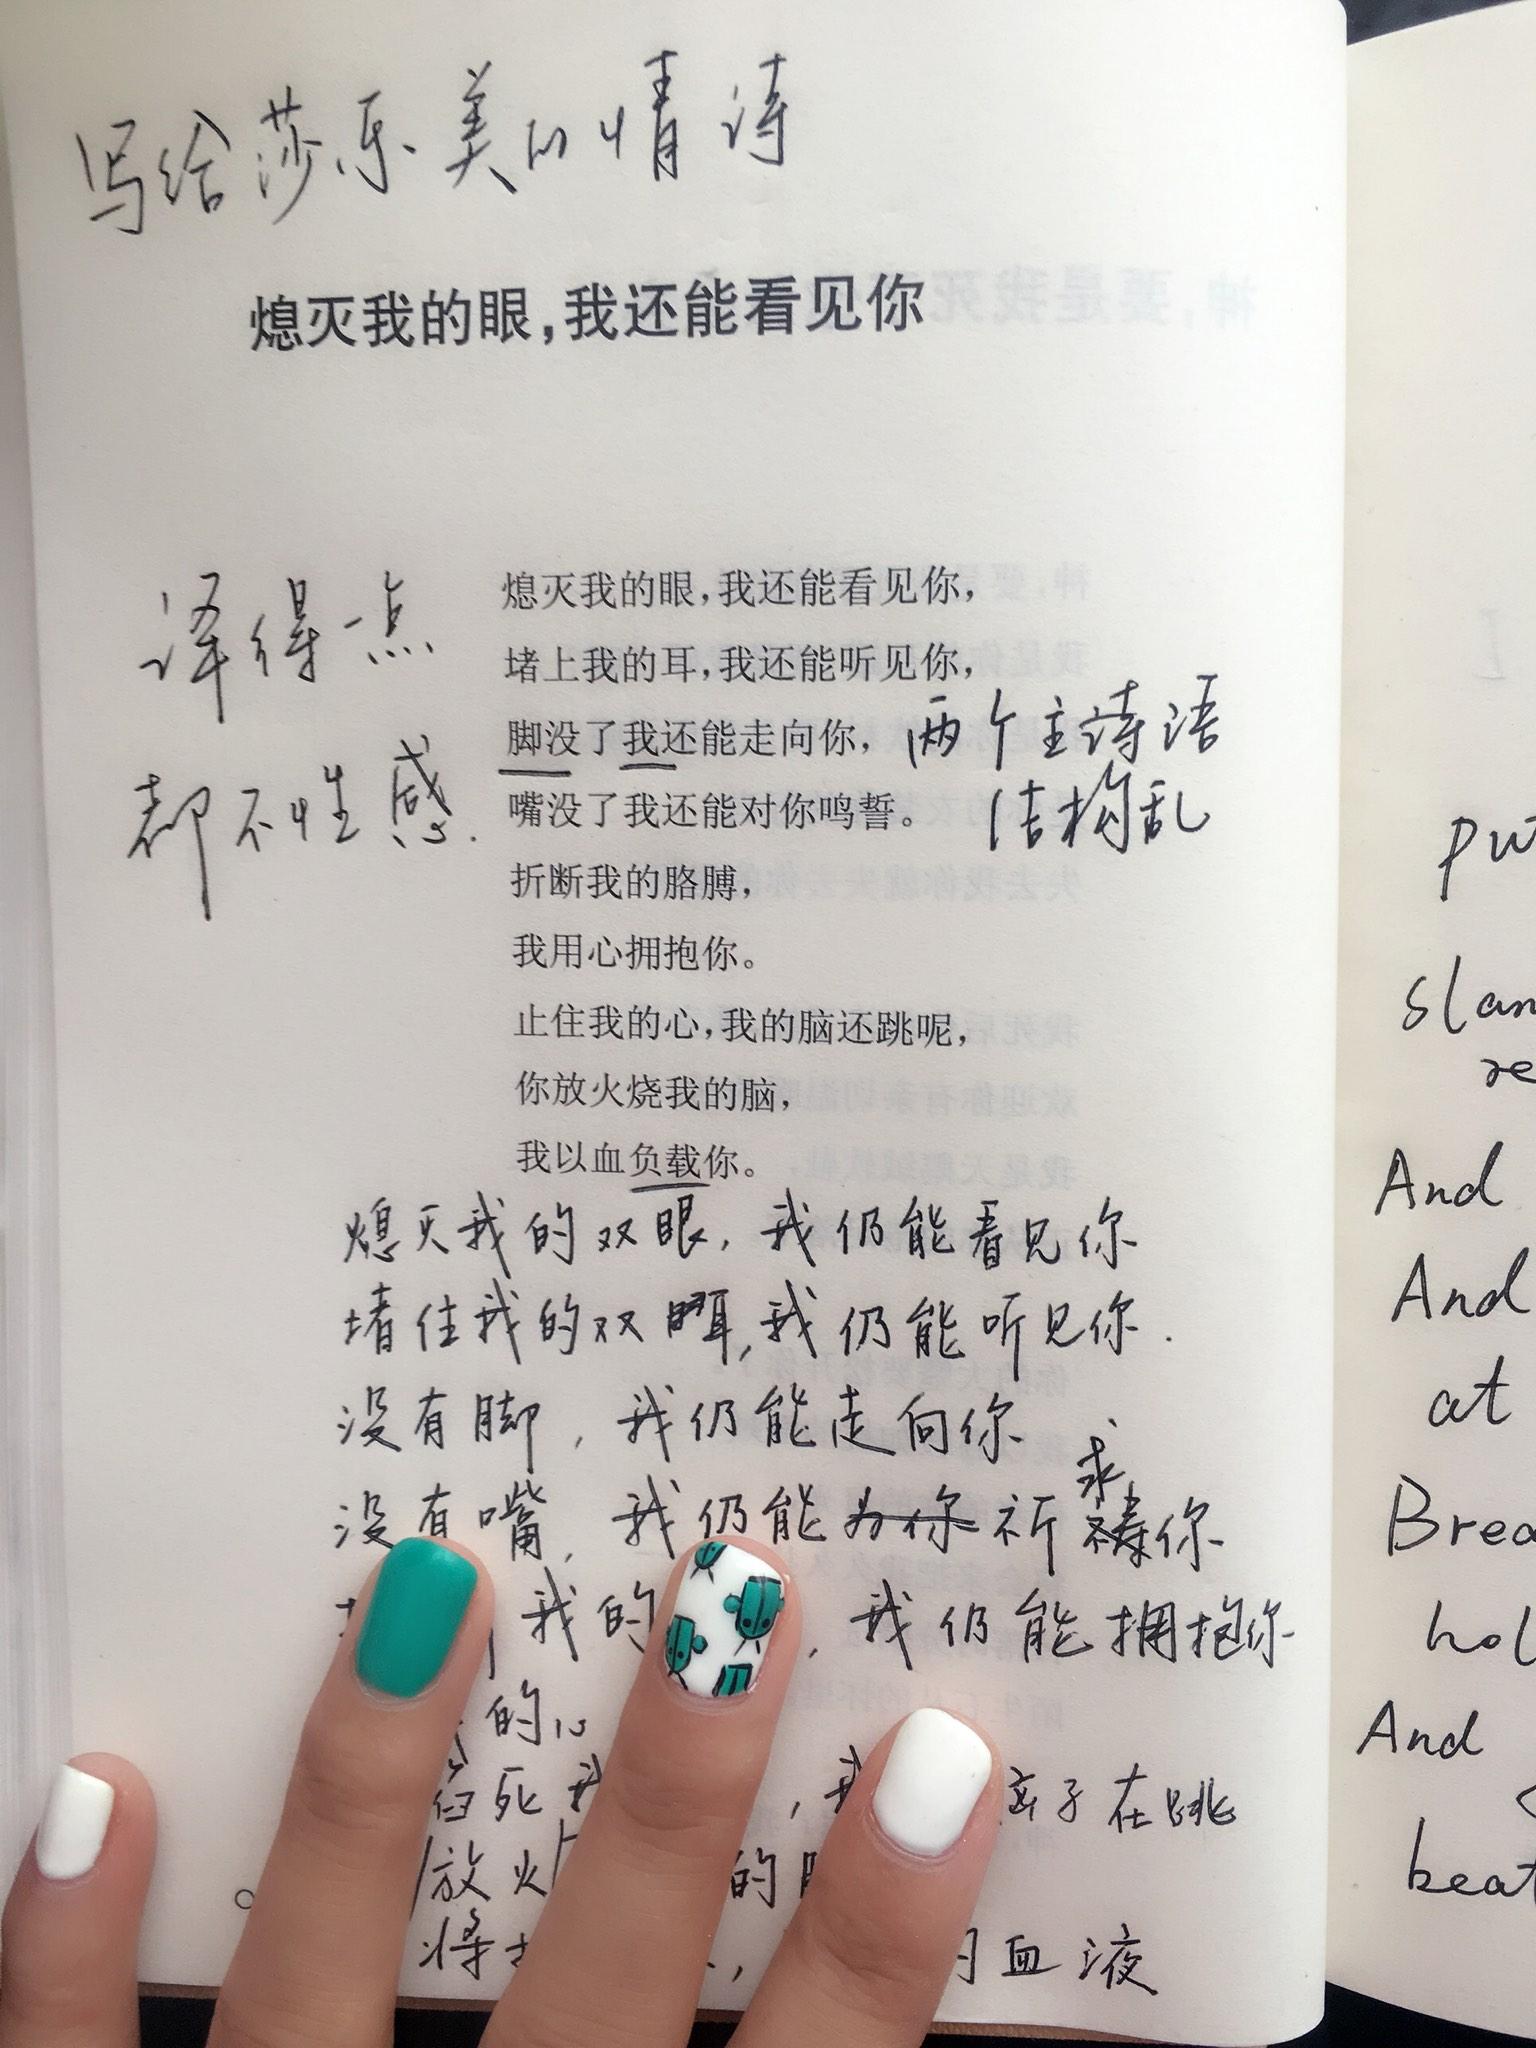 写给莎乐美的情诗
熄灭我的眼,我还能看见你
译得一点
都不性感.
熄灭我的眼,我还能看见你,
堵上我的耳,我还能听见你,
脚没了我还能走向你,
嘴没了我还能对你鸣誓。
折断我的胳膊,
我用心拥抱你。
止住我的心,我的脑还跳呢,
你放火烧我的脑,
我以血负载你。
两个主诗语
结构乱
熄灭我的双眼,我仍能看见你
堵住我的双耳,我仍能听见你.
没有脚,我仍能走向你
没有嘴,我仍能为你祈求祷你
我的 ,我仍能拥抱你
的心
死我 ,我 在跳
放火 的
将 , 血液
And
And
at
And